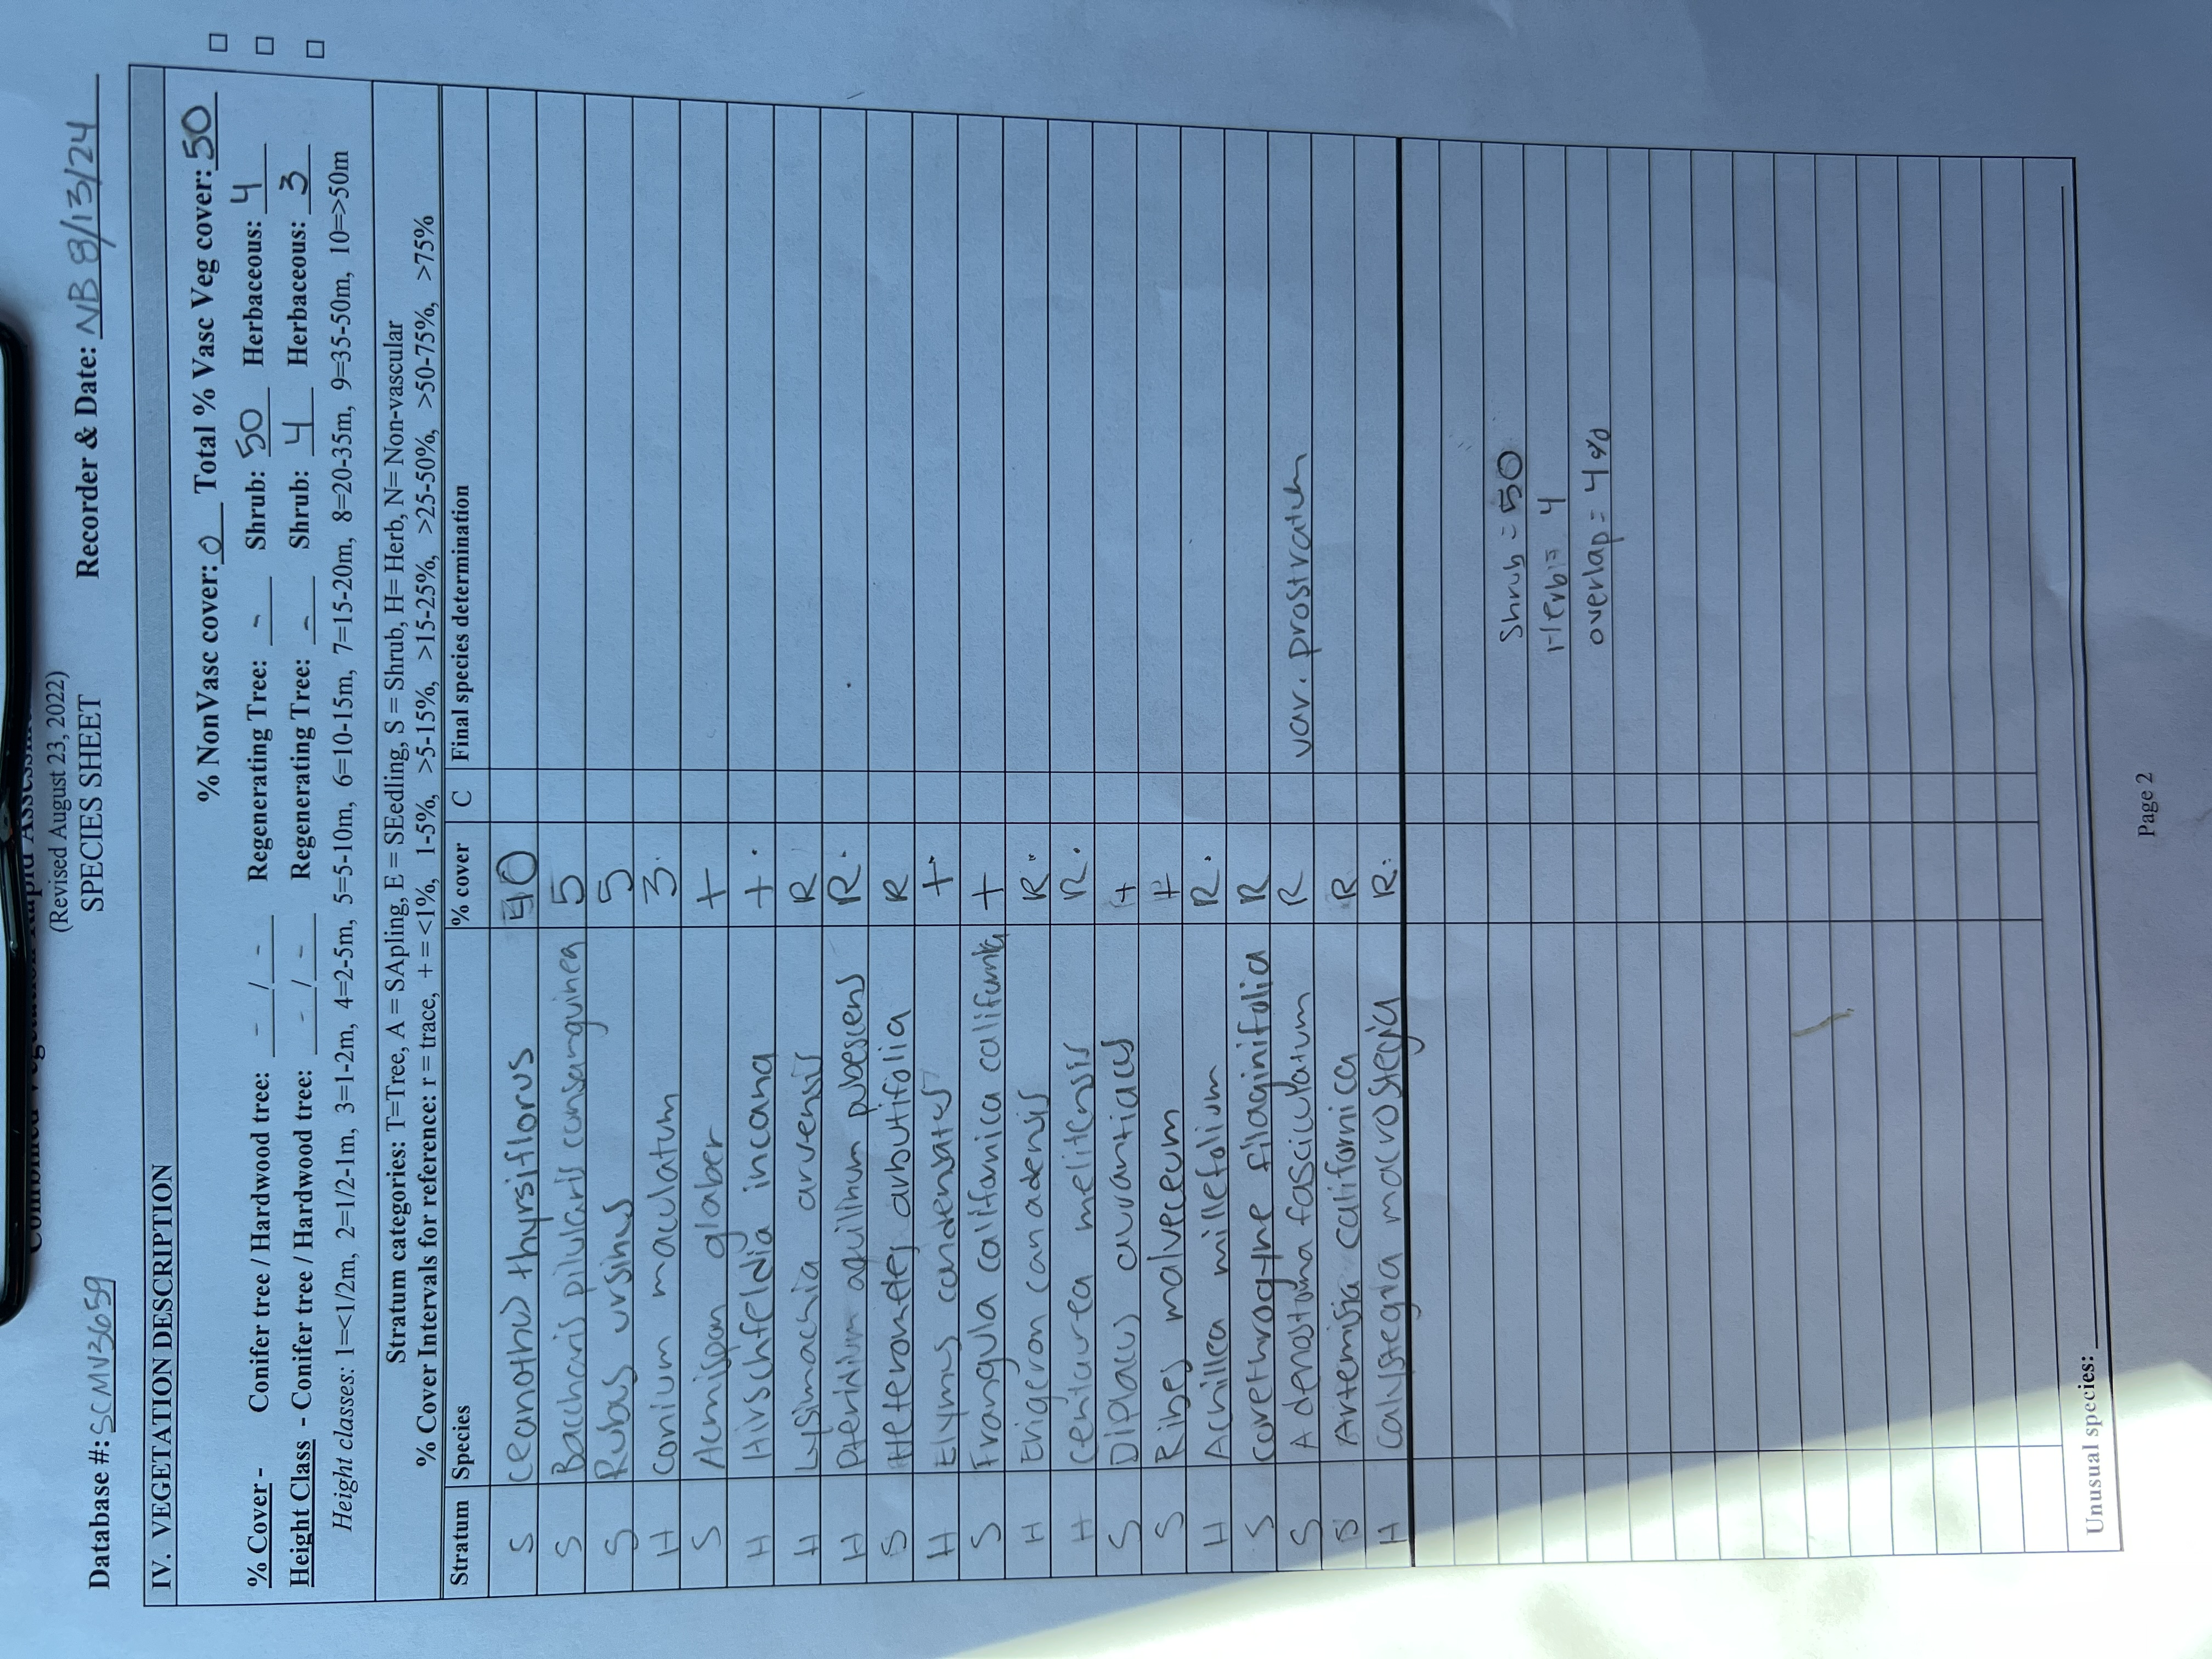 (Revised August 23, 2022)
SPECIES SHEET
Database #: SCMV3659 Recorder & Date: NB 8/13/24
IV. VEGETATION DESCRIPTION
% NonVasc cover: 0 Total % Vasc Veg cover: 50
% Cover - Conifer tree / Hardwood tree: - / - Regenerating Tree: - Shrub: 50 Herbaceous: 4
Height Class - Conifer tree / Hardwood tree: - / - Regenerating Tree: - Shrub: 4 Herbaceous: 3
Height classes: 1=<1/2m, 2=1/2-1m, 3=1-2m, 4=2-5m, 5=5-10m, 6=10-15m, 7=15-20m, 8=20-35m, 9=35-50m, 10=>50m
Stratum categories: T=Tree, A = SApling, E = SEedling, S = Shrub, H= Herb, N= Non-vascular
% Cover Intervals for reference: r = trace, + = <1%, 1-5%, >5-15%, >15-25%, >25-50%, >50-75%, >75%
Stratum Species % cover C Final species determination
S Ceanothus thyrsiflorus 40
S Baccharis pilularis consanguinea 5
S Rubus ursinus 5
H Conium maculatum 3.
S Acmispon glaber +
H Hirschfeldia incana + .
H Lysimachia arvensis R
H Pteridium aquilinum pubescens R.
S Heteromeles arbutifolia R
H Elymus condensatus +
S Frangula californica californica +
H Erigeron canadensis R.
H Centaurea melitensis R.
S Diplacus aurantiacus +
S Ribes malvaceum +
H Achillea millefolium R.
S Corethrogyne filaginifolia R
S Adenostoma fasciculatum R var. prostratum
S Artemisia californica R
H Calystegia macrostegia R.
Shrub = 50
Herb = 4
overlap = 4%
Unusual species:
Page 2